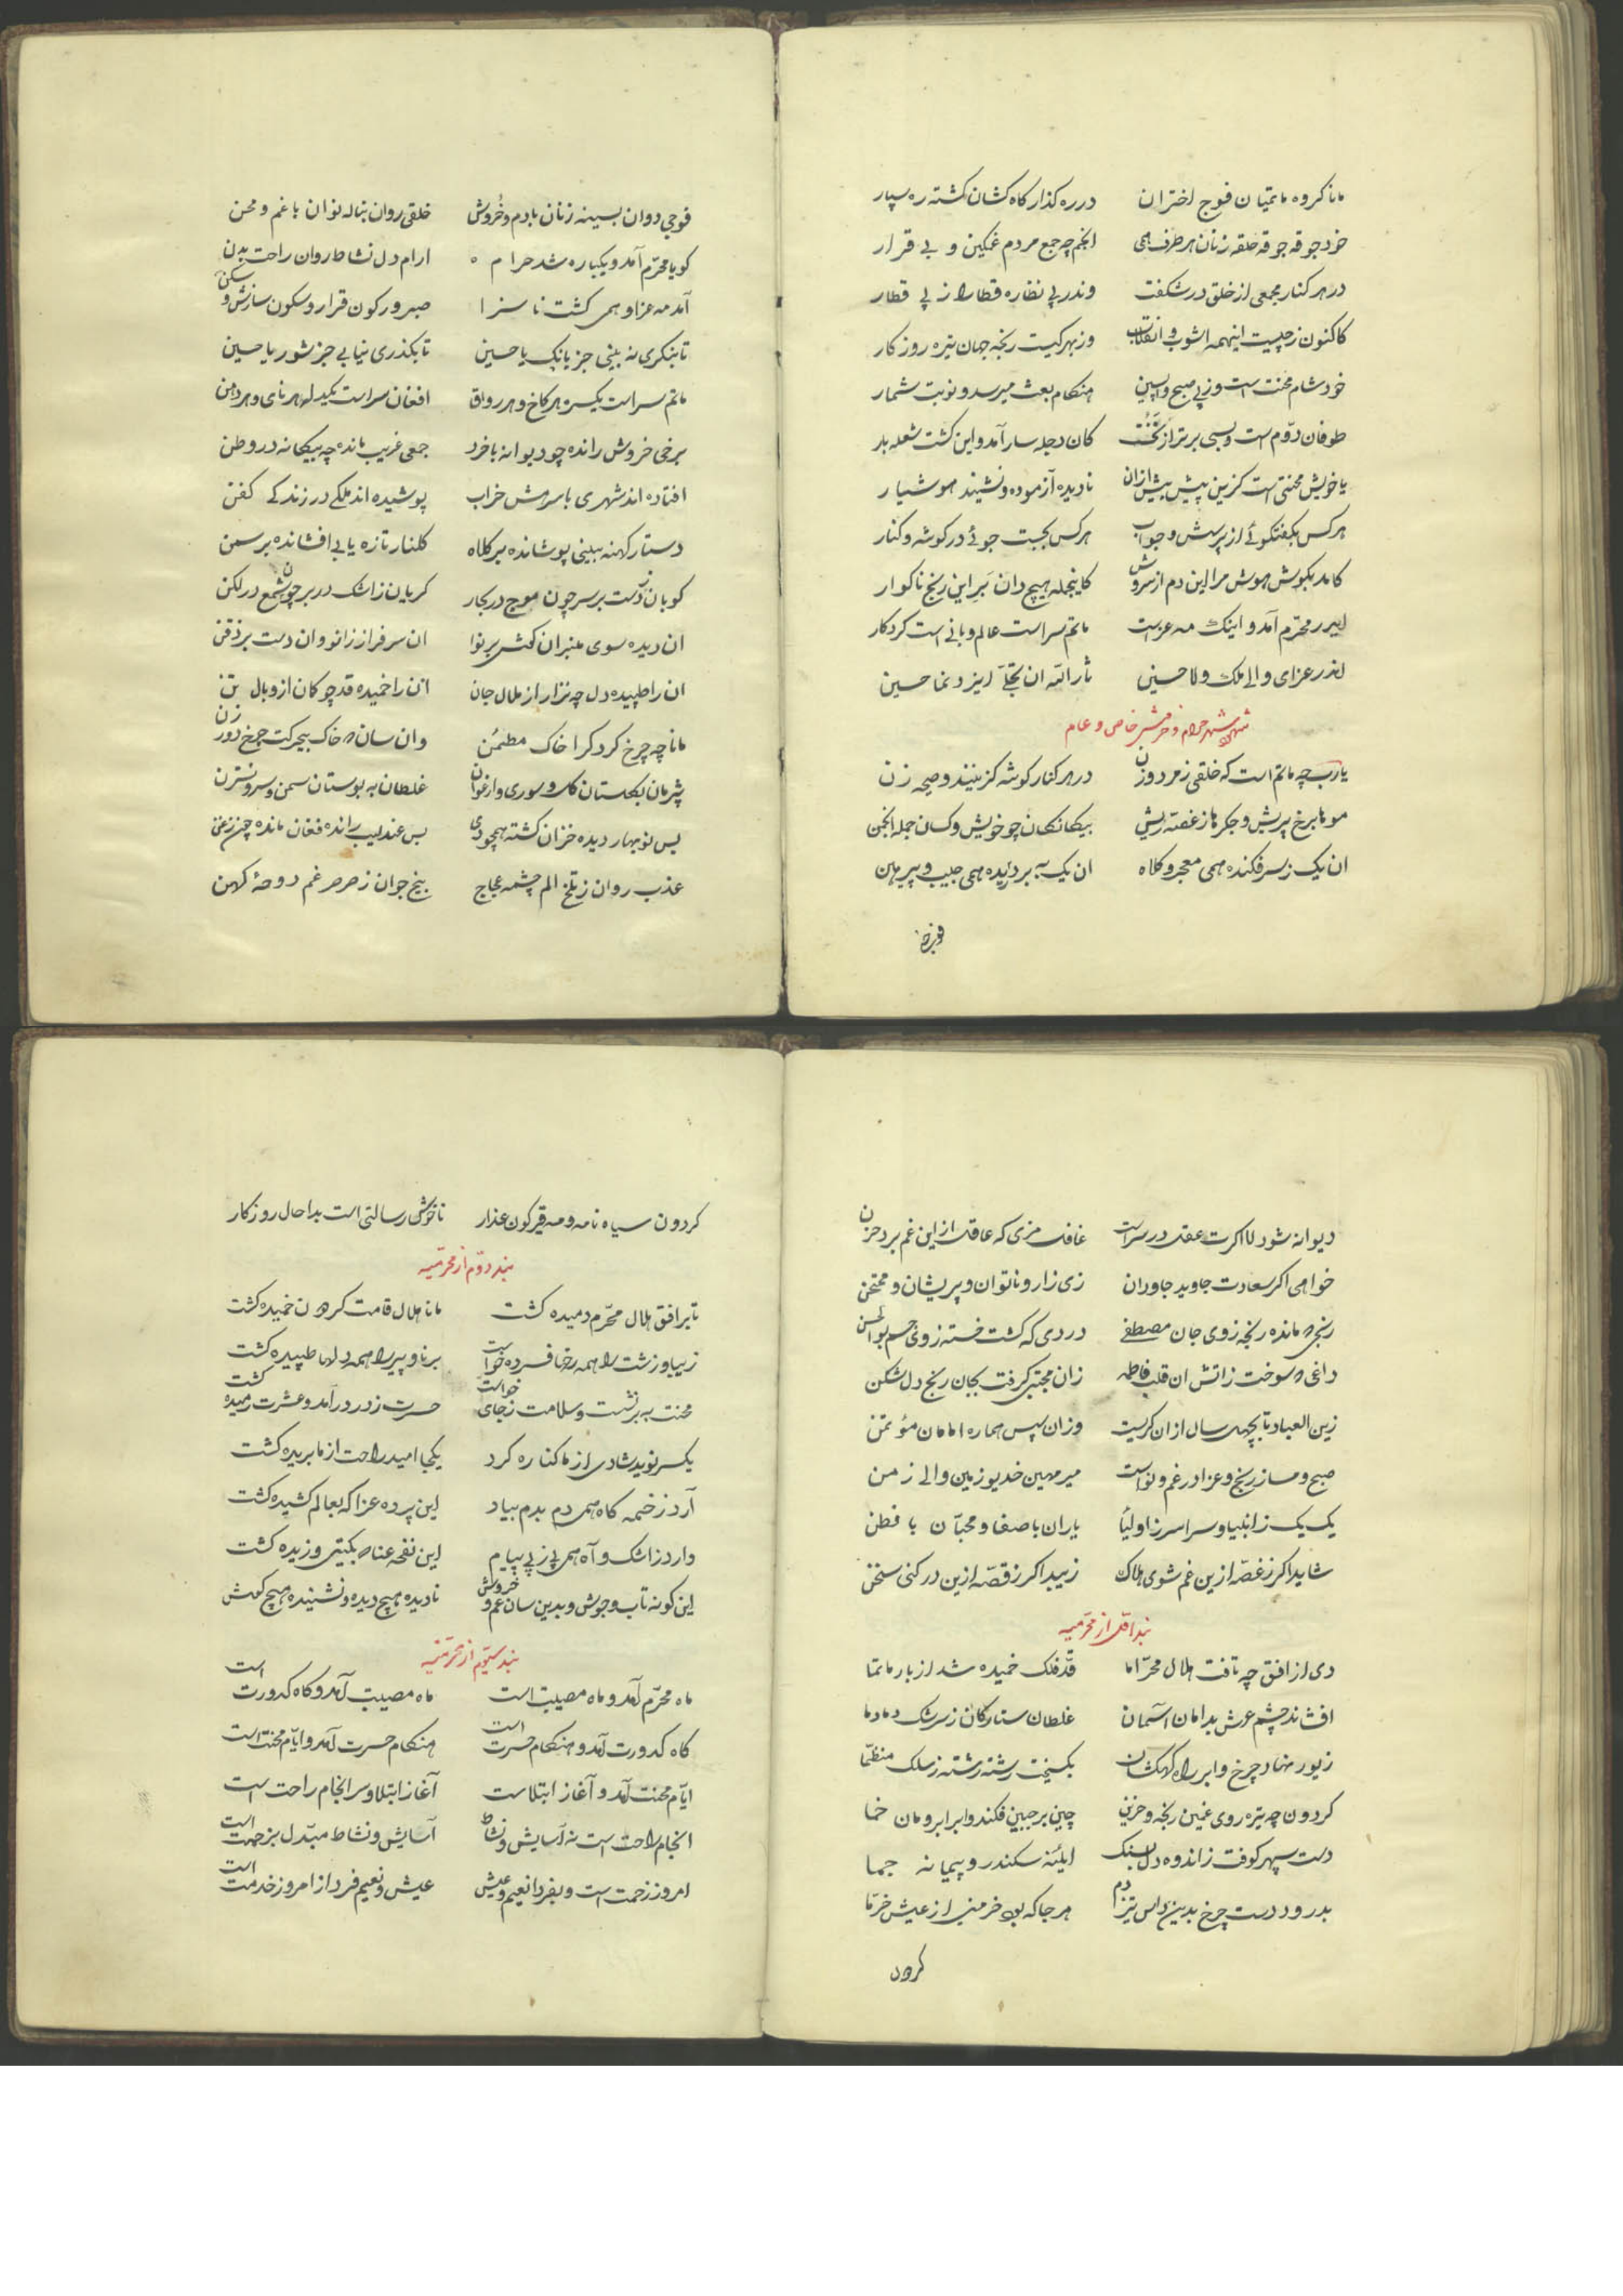 مانا کروه ماتمیان فوج اختران درره کذار کاه کشان کشته ره سپار
خود جوقه جوقه حلقه زنان هر طرف همی انجم چه جمع مردم غمکین و بی قرار
در هر کنار مجمعی از خلق در شکفت وندر پی نظاره قطار از پی قطار
کاکنون ز چیست اینهمه اشوب و انقلاب وز بهر کیست رنجه جهان تیره روزکار
خود شام محنت است وز پی صبح واپسین هنکام بعث میرسد و نوبت شمار
طوفان دوم است و بسی برتر از نخست کان دجله سار آمد و این کشت شعله بار
یا خویش محنتی است کزین پیش پیش ازان نادیده آزموده و نشنید هوشیار
هر کس بکفتکوئے از پرسش و جواب هر کس بجست جوئے در کوشه و کنار
کامد بکوش هوش مرا این دم از سروش کاینجمله هیچ دان بَرِ این رنج ناکوار
ایدر محرّم آمد و اینک مه عزاست ماتم سراست عالم و بانی است کردکار
اندر عزای والی ملک ولا حسین ثاراللّه ان تجلّے ایزد نما حسین
شهراه شهر حرام و خرمش خاص و عام
یارب چه ماتم است که خلقی ز مرد و زن در هر کنار کوشه کزینند و صیحه زن
موها برخ پریش و جکرها ز غصه ریش بیکانکان چو خویش و کسان جمله انجمن
ان یک ز سر فکنده همی معجر و کلاه ان یک ببر دریده همی جیب و پیرهان
فوجی
فوجی دوان بسینه زنان با دم و خروش خلقی روان بناله نوان با غم و محن
کویا محرّم آمد و یکباره شد حرام ارام دل نشاط روان راحت بدن
آمد مه عزا و همی کشت ناسزا صبر و رکون قرار و سکون سازش و سکن
تا بنکری نه بینی جز بانک یا حسین تا بکذری نیابی جز شور یا حسین
ماتم سراست یکسره هر کاخ و هر رواق افغان سراست یکدله هر نای و هر دهن
برخی خروش رانده چو دیوانه با خرد جمعی غریب مانده چه بیکانه در وطن
افتاده اند شهری با سرهش خراب پوشیده اند ملکے در زندکے کفن
دستار کهنه بینی پوشانده بر کلاه کلنار تازه یابی افشانده بر سمن
کوبان ز دست بر سر چون موج در بحار کریان ز اشک در بر چون شمع در لکن
ان دیده سوی منبران کش بر نوا ان سر فراز زانو و ان دست بر ذقن
ان را طپیده دل چه نزار از ملال جان ان را خمیده قد چو کمان از وبال تن
مانا چه چرخ کرد کرا خاک مطمئن وان سان که خاک بیحرکت چرخ دور زن
پژمان بکلستان کل و سوری و ارغوان غلطان به بوستان سمن و سرو و نسترن
بس نوبهار دیده خزان کشته همچو دی بس عندلیب رانده فغان مانده چون زغن
عذب روان ز تلخ الم چشمه عجاج بیخ جوان ز صرصر غم دوحهٔ کهن
دیوانه شود لا اکرت عقل در سراست غافل مزی که عاقل از این غم برد حزن
خواهی اکر سعادت جاوید جاودان زی زار و ناتوان و پریشان و ممتحن
رنجی که مانده رنجه زوی جان مصطفے دردی که کشت خسته زوی جسم بوالحسن
داغی که سوخت زاتش ان قلب فاطمه زان مجتبی کرفت بجان رنج دل شکن
زین العباد تا بچهل سال ازان کریست وزان سپس هماره امامان مؤتمن
صبح و مسا ز رنج و عزا در غم و نواست میر مهین خدیو زمین والی زمن
یک یک ز انبیا و سراسر ز اولیا یاران با صفا و محبّان با فطن
شاید اکر ز غصّه ازین غم شوی هلاک زیبد اکر ز قصّه ازین در کنی سخن
بند اوّل از محرّمیه
دی از افق چه تافت هلال محرّما قدّ فلک خمیده شد از بار ماتما
افشاند چشم عرش بدامان آسمان غلطان ستارکان ز سرشک دمادما
زیور نهاد چرخ و ابر راه کهکشان بکسیخت رشته رشته ز سلک منظّما
کردون چه تیره روی غمین رنجه و حزین چین بر جبین فکند و ابر ابروان خما
دست سپهر کوفت ز اندوه دل بسنک ایئنه سکندر و پیمانه جما
بدرود دست چرخ بدین داس تیز دم هر جا که بود خرمنی از عیش خرّما
کردون
کردون سیاه نامه و مه قیرکون عذار ناخوش رسالتی است بداحال روزکار
بند دوّم از محرّمیه
تا بر افق هلال محرّم دمیده کشت مانا هلال قامت کردون خمیده کشت
زیبا و زشت را همه رخها فسرده خواست برنا و پیر را همه دلها طپیده کشت
محنت به بر نشست و سلامت ز جای خواست حسرت ز در درآمد و عشرت رمیده کشت
یکسر نوید شادی از ما کناره کرد یکجا امید راحت از ما بریده کشت
آرد ز خیمه کاه همی دم بدم بیاد این پرده عزا که بعالم کشیده کشت
دارد ز اشک و آه همی پی ز پی پیام این نفحه عنا که بکیتی وزیده کشت
این کونه تاب و جوش و بدین سان غم و خروش نادیده هیچ دیده و نشنیده هیچ کوش
بند سیّوم از محرّمیه
ماه محرّم آمد و ماه مصیبت است ماه مصیبت آمد و کاه کدورت است
کاه کدورت آمد و هنکام حسرت است هنکام حسرت آمد و ایّام محنت است
ایّام محنت آمد و آغاز ابتلاست آغاز ابتلا و سرانجام راحت است
انجام راحت است نه آسایش و نشاط آسایش و نشاط مبّدل بزحمت است
امروز زحمت است و بفردا نعیم و عیش عیش و نعیم فردا از امروز خدمت است